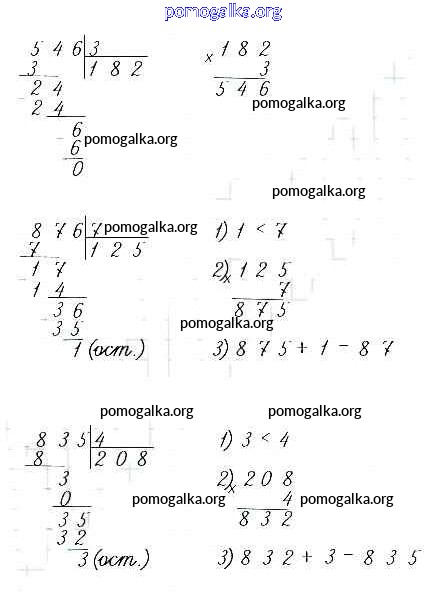 pomogalka.org
546 3 182
3 182 × 3
24 546
24 pomogalka.org
6 pomogalka.org
6
0
pomogalka.org
876 7 pomogalka.org 1) 1 < 7
7 125
17 2) 125
14 × 7
36 875
35 pomogalka.org
1 (ост.) 3) 875 + 1 - 87
pomogalka.org pomogalka.org
835 4 1) 3 < 4
8 208
3 2) 208
0 pomogalka.org × 4 pomogalka.org
35 832
32
3 (ост.) 3) 832 + 3 - 835